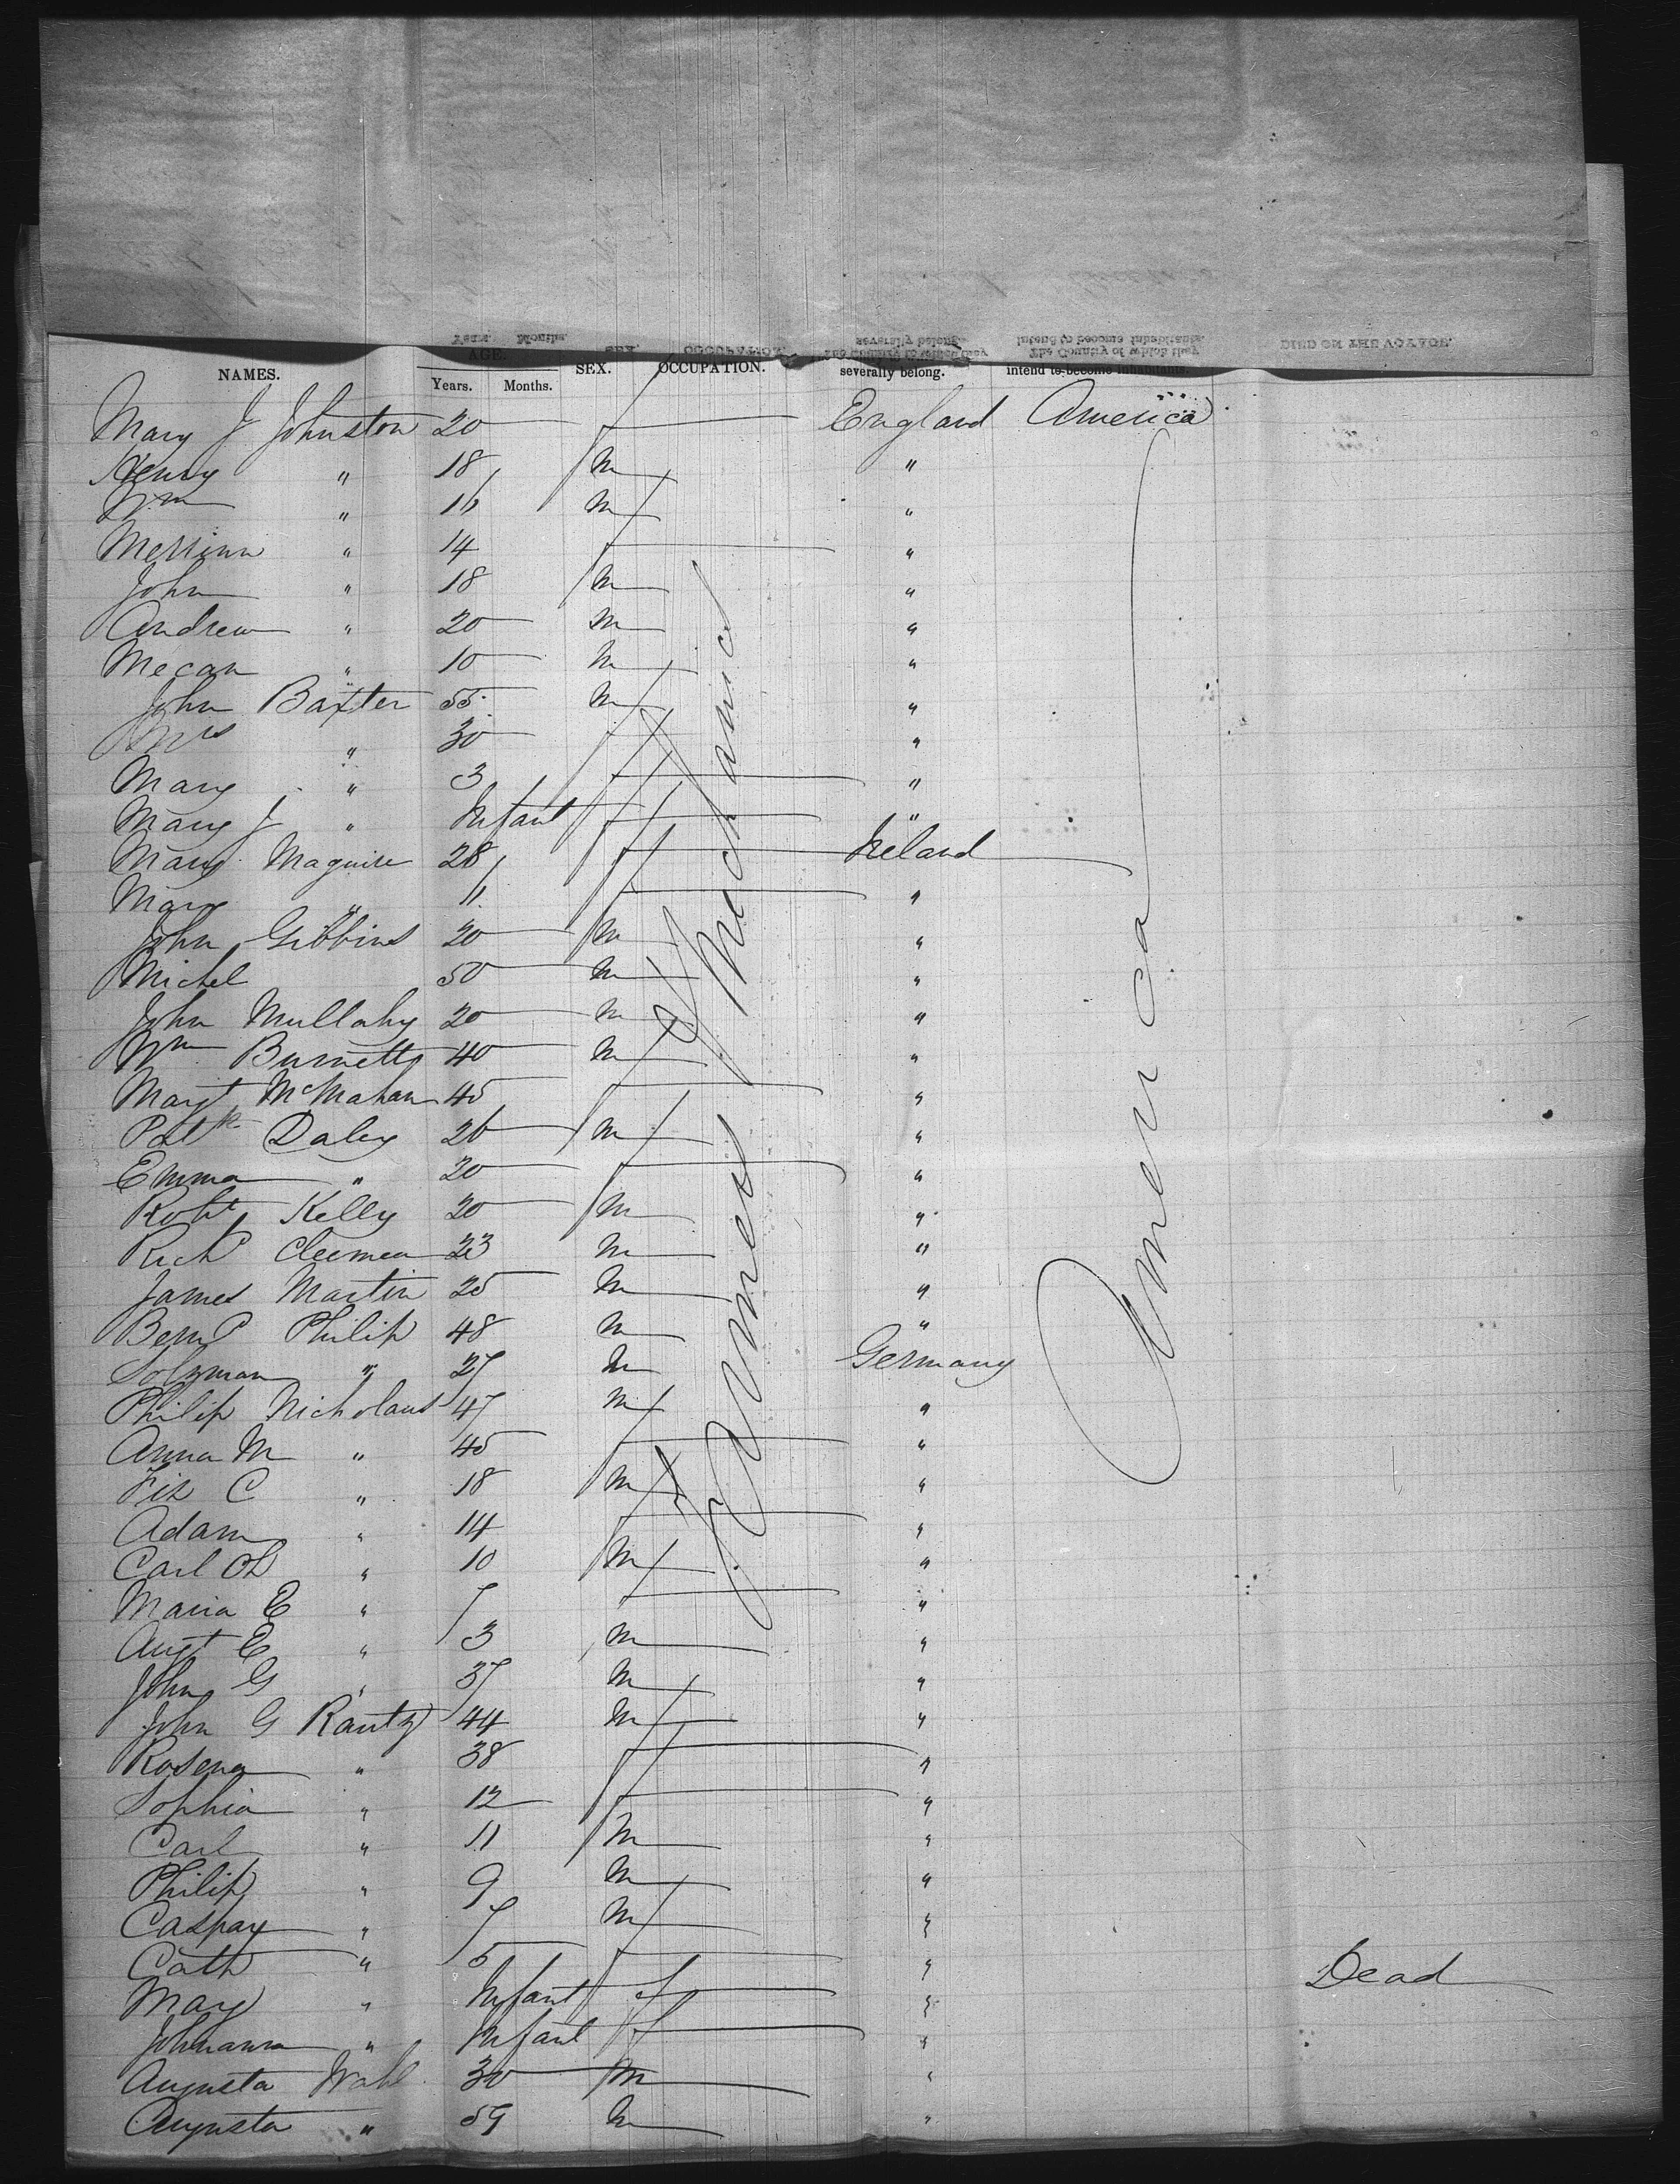 NAMES. AGE. Years. Months. SEX. OCCUPATION. severally belong. intend to become inhabitants. DIED ON THE VOYAGE.
Mary J Johnston 20 f England America
Henry " 18 m "
Wm " 16 m "
" 14 f "
John " 18 m "
Andrew " 20 m "
Mecan " 10 m "
John Baxter 55 m "
Mrs " 30 f "
Mary " 3 f "
Mary J " Infant f "
Mary Maguire 28 f Ireland
Mary " 11 f "
John Gibbins 20 m "
Michel 50 m "
John Mullahy 20 m "
Wm Burnett 40 m "
Margt McMahan 45 f "
Patk Daley 26 m "
Emma " 20 f "
Robt Kelly 20 m "
Richd 23 m "
James Martin 25 m "
Philip 48 m "
" 27 m Germany
Philip Nicholaus 47 m "
Anna M " 45 f "
C " 18 m "
Adam " 14 f "
Carl " 10 m "
Maria E " 7 f "
Augt E " 3 m "
John G " 37 m "
John G Rautz 44 m "
Rosena " 38 f "
Sophia " 12 f "
Carl " 11 m "
Philip " 9 m "
Caspar " 7 m "
Cath " 5 f "
Mary " Infant f " Dead
Johanna " Infant f "
Augusta Wahl 30 m "
Augusta " 59 m "
Farmers & Mechanics
America